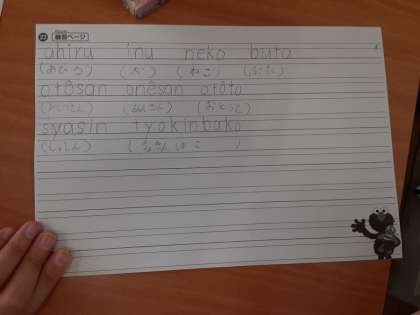 23 練習ページ
ahiru inu neko buta
(あひる) (いぬ) (ねこ) (ぶた)
otôsan onêsan otôto
(おとうさん) (おねえさん) (おとうと)
syasin tyokinbako
(しゃしん) (ちょきんばこ)